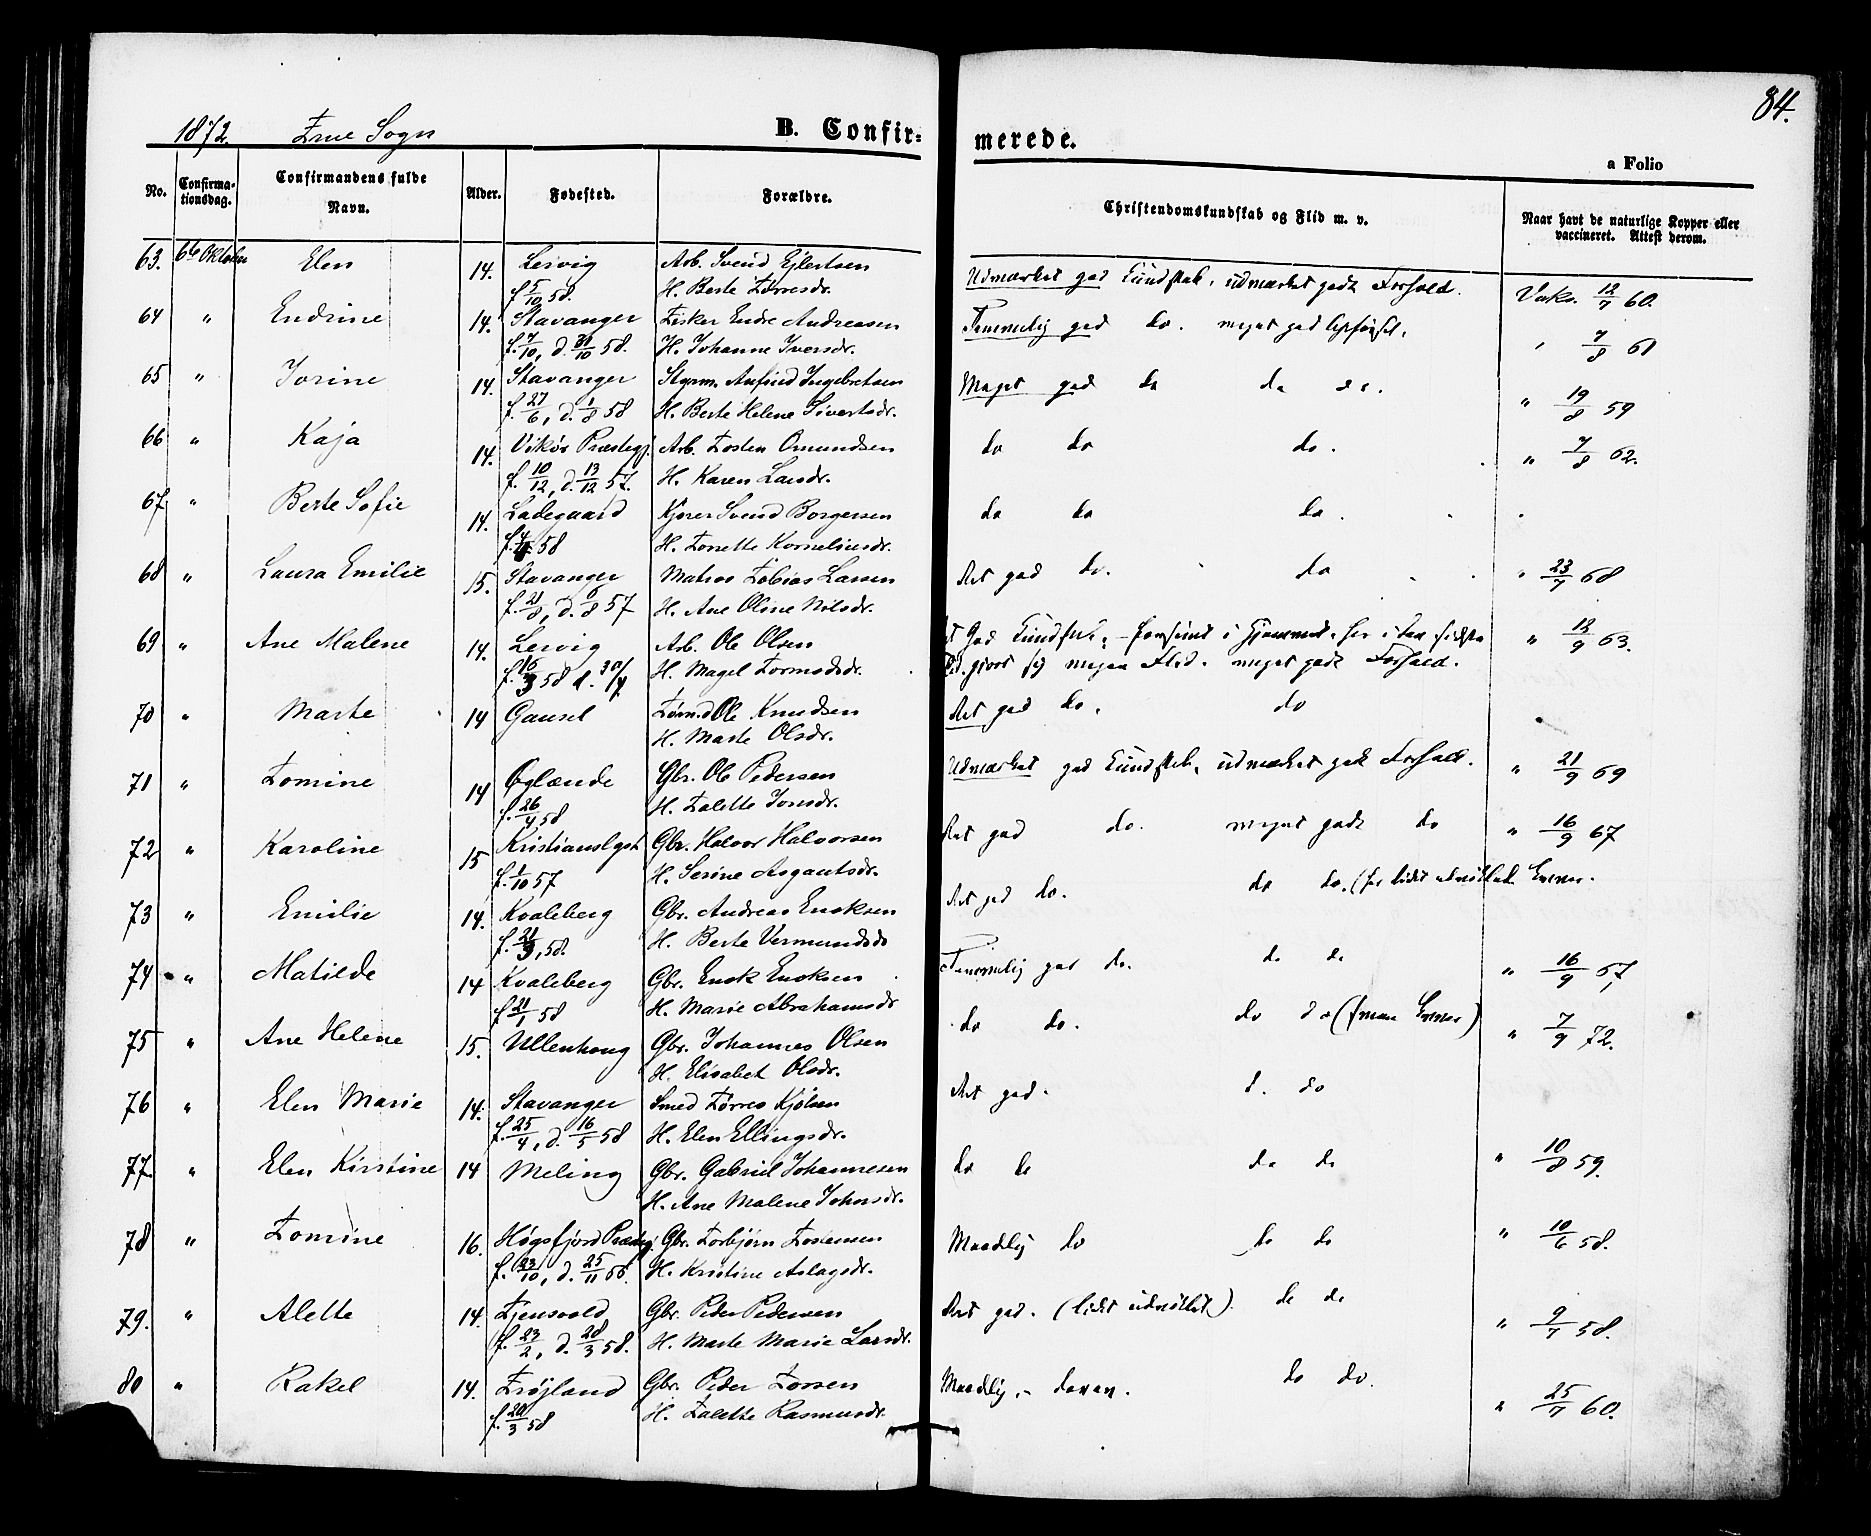 84.
1872. Frue Sogn B. Confir= merede.
a Folio
No. Confirma-tionsdag. Confirmandens fulde Navn. Alder. Fødested. Forældre. Christendomskundskab og Flid m. v. Naar havt de naturlige Kopper eller vaccineret. Attest derom.
63. 6te Oktober Elen 14. Lervig Arb. Svend Ejlertsen Udmærket god Kundskab, udmærket godt Forhold. Vaks. 12/7 60.
f. 5/10 58. H. Berte Tørresdr.
64 " Endrine 14. Stavanger Fisker Endre Andreasen Temmelig god do. meget god Opførsel. 7/8 61
f. 7/10, d. 31/10 58. H. Johanne Iversdr.
65 " Jorine 14. Stavanger Styrm. Anfind Ingebretsen Meget god do do do. " 19/8 59
f. 27/6, d. 1/8 58 H. Berte Helene Sivertsdr.
66 " Kaja 14. Vikør Præstegj. Arb. Tosten Omundsen do do do. " 7/8 62.
f. 10/12, d. 13/12 57. H. Karen Larsdr.
67 " Berte Sofie 14. Ladegaard Kjører Svend Borgersen do do do.
58 H. Tonette Korneliusdr.
68 " Laura Emilie 15. Stavanger Matros Tobias Larsen Ret god do. do " 23/7 68
f. 21/8, d. 6/8 57 H. Ane Oline Nilsdr.
69 " Ane Malene 14. Lervig Arb. Ole Olsen god Kundskab, forsømt i Hjemmet, har i den sidste " 12/9 63.
f. 16/3 58 d. 30/4 H. Magel Tormodsdr. Tid gjort sig megen Flid. meget godt Forhold.
70 " Marte 14 Gausel Tørm. Ole Knudsen Ret god do. do
H. Marte Olsdr.
71 " Tomine 14 Øglænde Gbr. Ole Pedersen Udmærket god Kundskab, udmærket godt Forhold. " 21/9 69
f. 26/4 58 H. Talette Jonsdr.
72 " Karoline 15 Kristianslyst Gbr. Halvor Halvorsen Ret god do. meget godt do " 16/9 67
f. 1/10 57 H. Serine Asgautsdr.
73 " Emilie 14. Kvaleberg Gbr. Andreas Enoksen Ret god do. do do. (for lidet udviklet
f. 21/3, 58. H. Berte Vermundsdr
74 " Matilde 14 Kvaleberg Gbr. Enok Enoksen Temmelig god do. do do " 16/9 67,
f. 21/1 58 H. Marie Abrahamsdr
75 " Ane Helene 15. Ullenhaug Gbr. Johannes Olsen do do. do do " 7/9 72.
H. Elisabet Olsdr.
76 " Elen Marie 14. Stavanger Smed Tørres Kjølsen Ret god. d. do
f. 25/4, d. 16/5 58 H. Elen Ellingsdr.
77. " Elen Kirstine 14 Meling Gbr. Gabriel Johannesen do do do do " 10/8 59.
H. Ane Malene Johnsdr.
78 " Tomine 16. Høgsfjord Præstegj. Gbr. Torbjørn Tostensen Maadelig do do do " 10/6 58.
f. 23/10, d. 25/11 55. H. Kristine Aslagsdr.
79. " Alette 14. Tjensvold Gbr. Peder Pedersen Ret god. (lidet udviklet). do do " 9/7 58.
f. 23/2, d. 28/3 58. H. Marte Marie Larsdr.
80 " Rakel 14. Trøjland Gbr. Peder Torsen Maadelig, do do. " 25/7 60.
f. 20/3 58 H. Talette Rasmusdr.